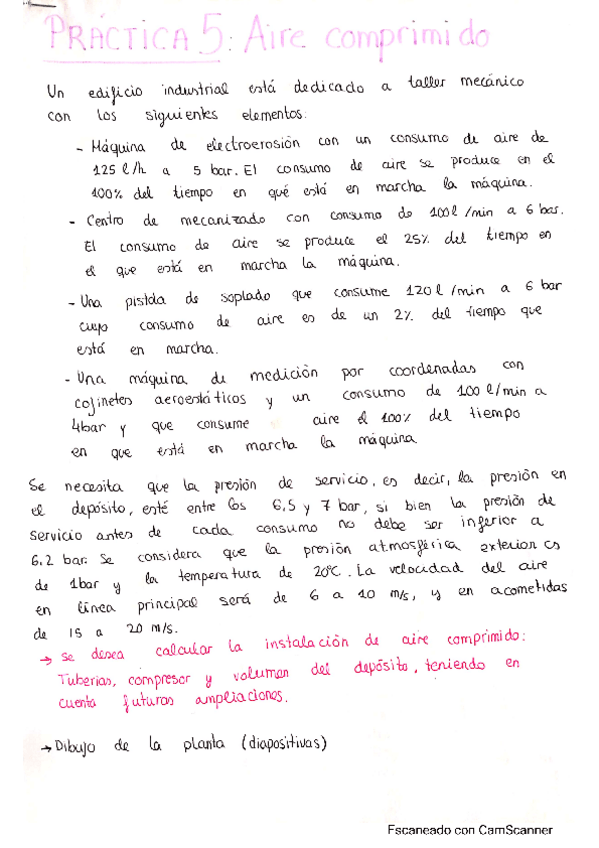 PRÁCTICA 5: Aire comprimido
Un edificio industrial está dedicado a taller mecánico
con los siguientes elementos:
- Máquina de electroerosión con un consumo de aire de
125 l/h a 5 bar. El consumo de aire se produce en el
100% del tiempo en qué está en marcha la máquina.
- Centro de mecanizado con consumo de 100 l/min a 6 bar.
El consumo de aire se produce el 25% del tiempo en
el que está en marcha la máquina.
- Una pistola de soplado que consume 120 l/min a 6 bar
cuyo consumo de aire es de un 2% del tiempo que
está en marcha.
- Una máquina de medición por coordenadas con
cojinetes aeroestáticos y un consumo de 100 l/min a
4bar y que consume aire el 100% del tiempo
en que está en marcha la máquina
Se necesita que la presión de servicio, es decir, la presión en
el depósito, esté entre los 6,5 y 7 bar, si bien la presión de
servicio antes de cada consumo no debe ser inferior a
6.2 bar. Se considera que la presión atmosférica exterior es
de 1bar y la temperatura de 20ºC. La velocidad del aire
en línea principal será de 6 a 10 m/s, y en acometidas
de 15 a 20 m/s.
→ Se desea calcular la instalación de aire comprimido:
Tuberías, compresor y volumen del depósito, teniendo en
cuenta futuras ampliaciones.
→ Dibujo de la planta (diapositivas)
Escaneado con CamScanner